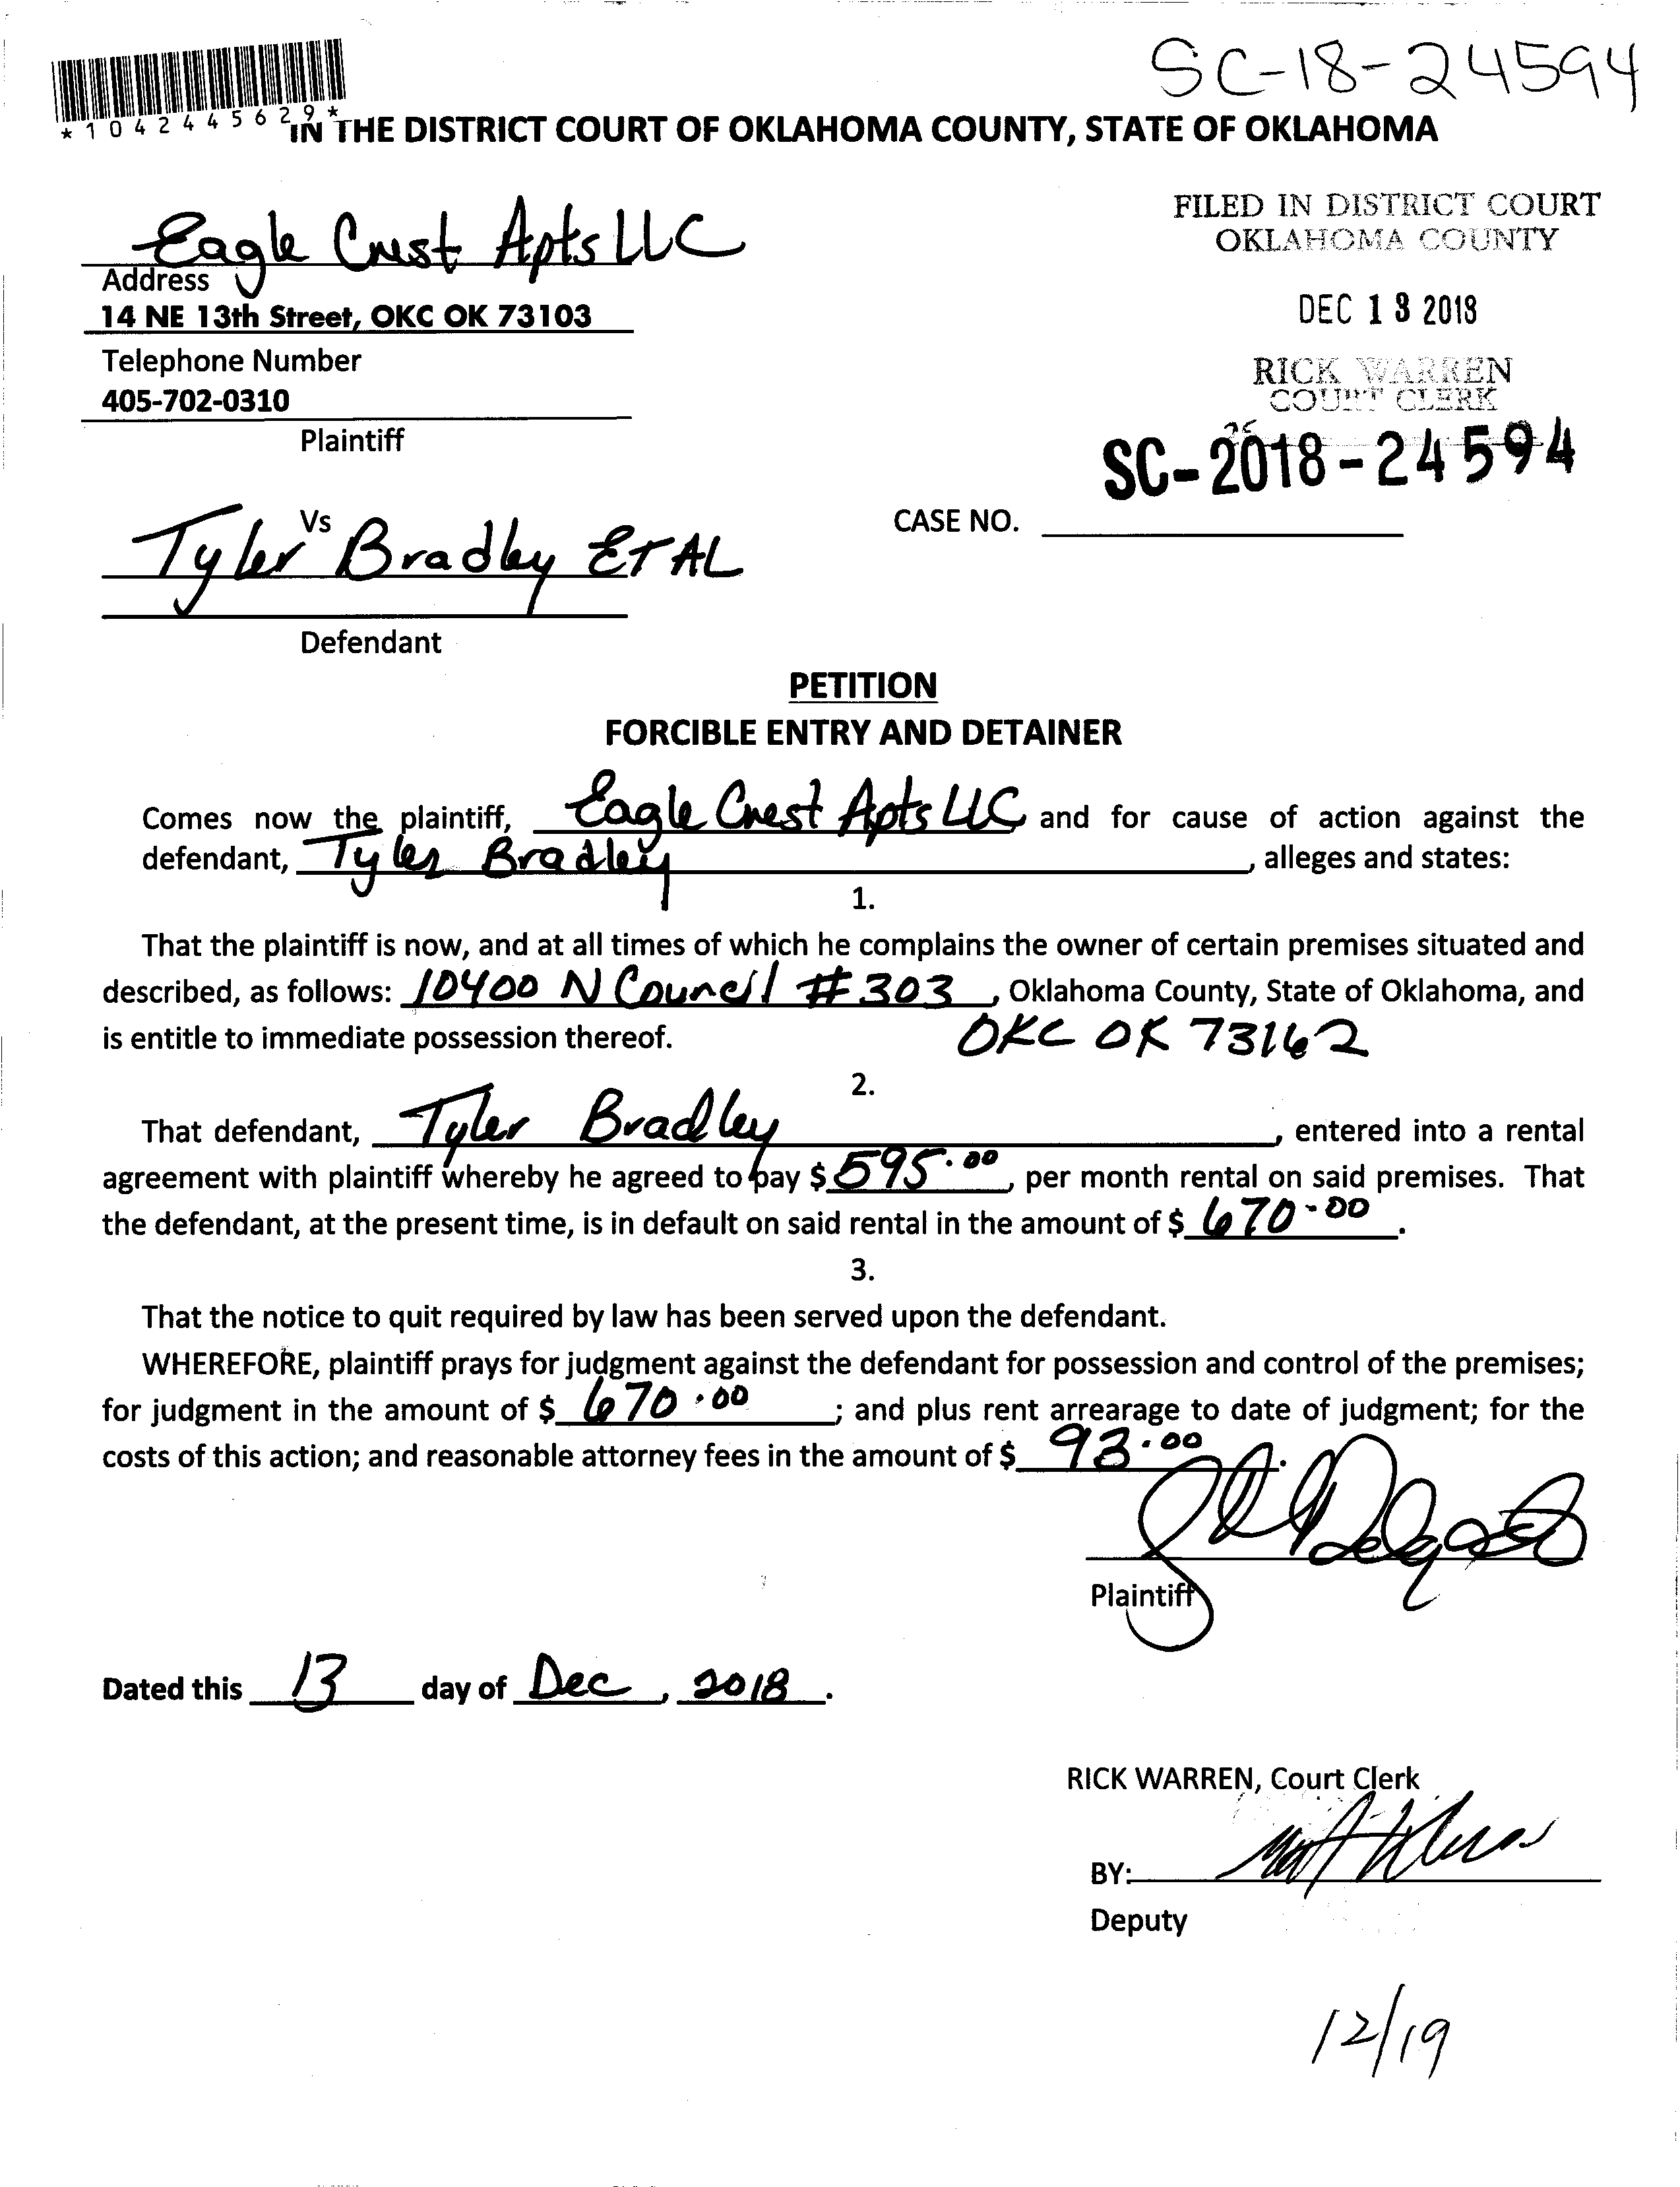 SC-18-24594
*1042445629*
IN THE DISTRICT COURT OF OKLAHOMA COUNTY, STATE OF OKLAHOMA
Eagle Crest Apts LLC
Address
14 NE 13th Street, OKC OK 73103
Telephone Number
405-702-0310
Plaintiff
FILED IN DISTRICT COURT
OKLAHOMA COUNTY
DEC 13 2018
RICK WARREN
COURT CLERK
SC-2018-24594
CASE NO.
Vs
Tyler Bradley ET AL
Defendant
PETITION
FORCIBLE ENTRY AND DETAINER
Comes now the plaintiff, Eagle Crest Apts LLC and for cause of action against the
defendant, Tyler Bradley, alleges and states:
1.
That the plaintiff is now, and at all times of which he complains the owner of certain premises situated and
described, as follows: 10400 N Council #303, Oklahoma County, State of Oklahoma, and
is entitle to immediate possession thereof. OKC OK 73162
2.
That defendant, Tyler Bradley, entered into a rental
agreement with plaintiff whereby he agreed to pay $595.00, per month rental on said premises. That
the defendant, at the present time, is in default on said rental in the amount of $670.00.
3.
That the notice to quit required by law has been served upon the defendant.
WHEREFORE, plaintiff prays for judgment against the defendant for possession and control of the premises;
for judgment in the amount of $670.00; and plus rent arrearage to date of judgment; for the
costs of this action; and reasonable attorney fees in the amount of $93.00.
Plaintiff
Dated this 13 day of Dec, 2018.
RICK WARREN, Court Clerk
BY:
Deputy
12/19